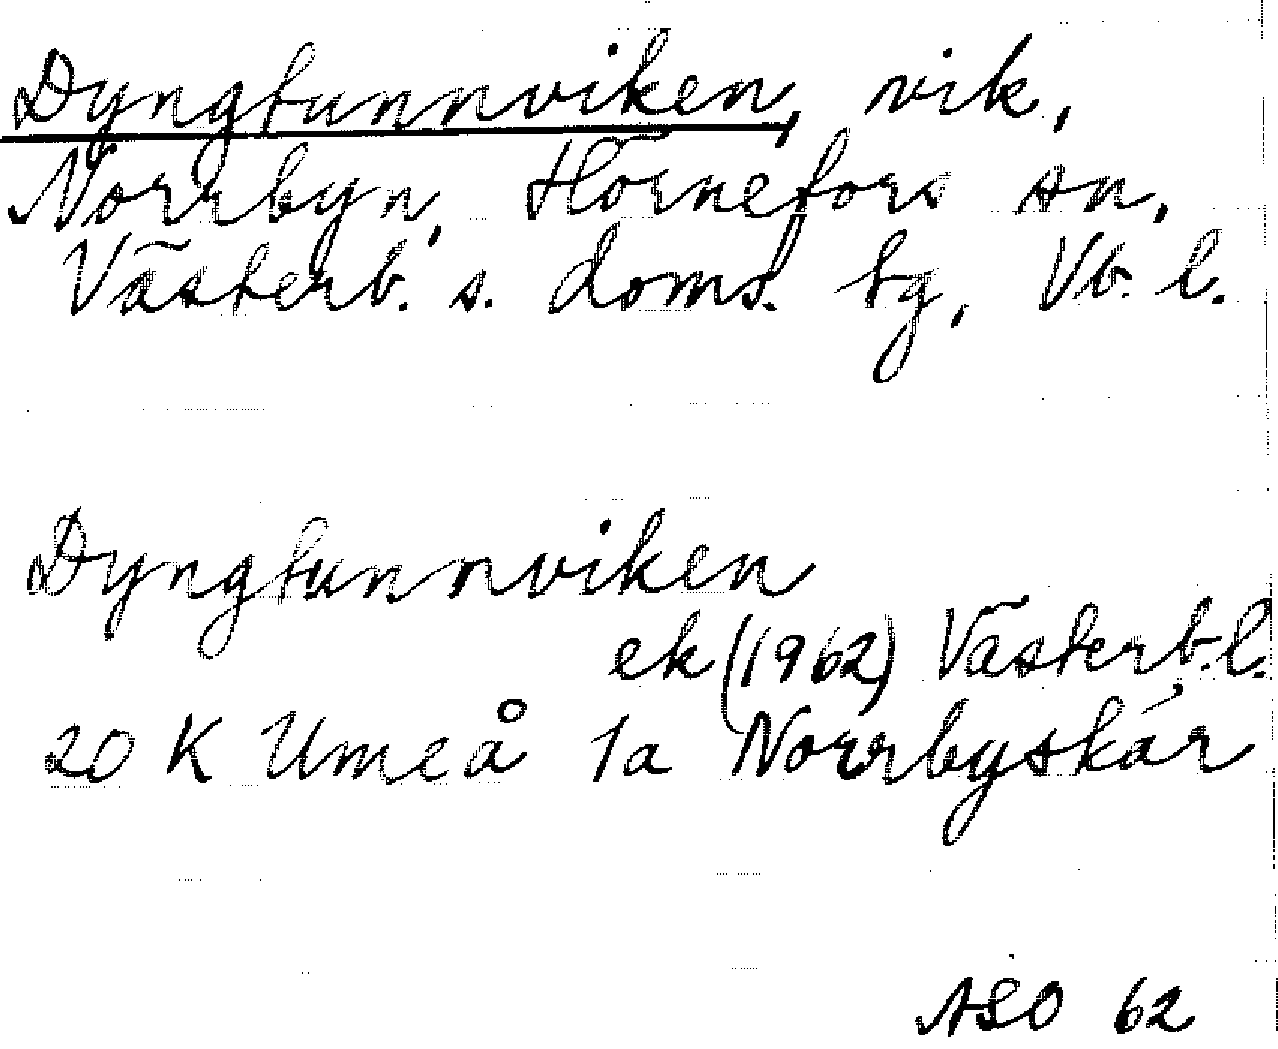 Dyngtunnviken, vik,
Norrbyn, Hörnefors sn,
Västerb. s. doms. tg, Vb. l.
Dyngtunnviken
ek (1962) Västerb. l.
20 K Umeå 1a Norrbyskär
ASO 62